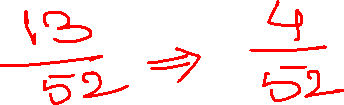 13/52 ⇒ 4/52